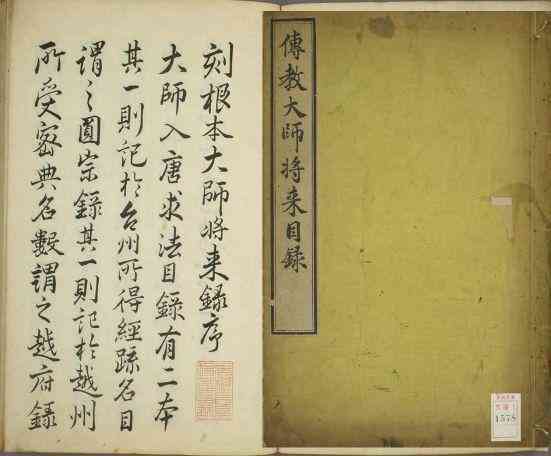 傳教大師將来目録
1578
刻根本大師將来録序
大師入唐求法目録有二本
其一則記於台州所得經疏名目
謂之圓宗錄其一則記於越州
所受密典名數謂之越府錄